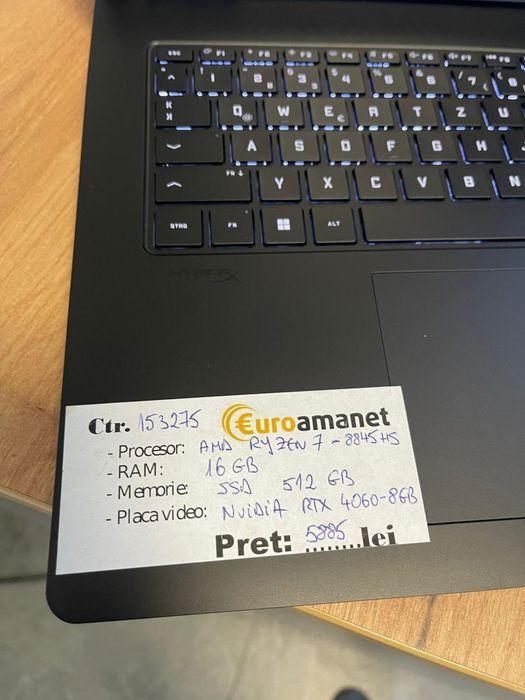 ESC F1 F2 F3 F4 F5 F6 F7 F8
^ ! 1 " 2 § 3 $ 4 % 5 & 6 / 7 ( 8
Q @ W E € R T Z U
A S D F G H
FN Y X C V B N
STRG FN ALT
HYPERX
Ctr. 153275 €uroamanet
- Procesor: AMD RYZEN 7 - 8845HS
- RAM: 16 GB
- Memorie: SSD 512 GB
- Placa video: NVIDIA RTX 4060-8GB
Pret: 5885 lei